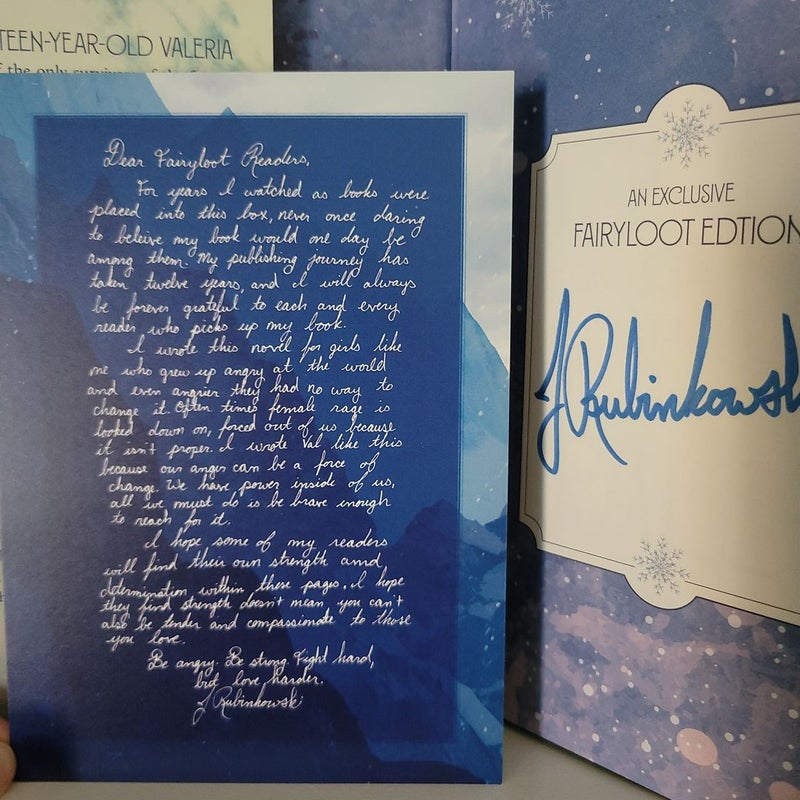 TEEN-YEAR-OLD VALERIA
f the only surviv
Dear Fairyloot Readers,
For years I watched as books were
placed into this box, never once daring
to beleive my book would one day be
among them. My publishing journey has
taken twelve years, and I will always
be forever grateful to each and every
reader who picks up my book.
I wrote this novel for girls like
me who grew up angry at the world
and even angrier they had no way to
change it. Often times female rage is
looked down on, forced out of us because
it isn't proper. I wrote Val like this
because our anger can be a force of
change. We have power inside of us,
all we must do is be brave enough
to reach for it.
I hope some of my readers
will find their own strength and
determination within these pages. I hope
they find strength doesn't mean you can't
also be tender and compassionate to those
you love.
Be angry. Be strong. Fight hard,
but love harder.
J Rubinkowski
AN EXCLUSIVE
FAIRYLOOT EDTION
J Rubinkowsk